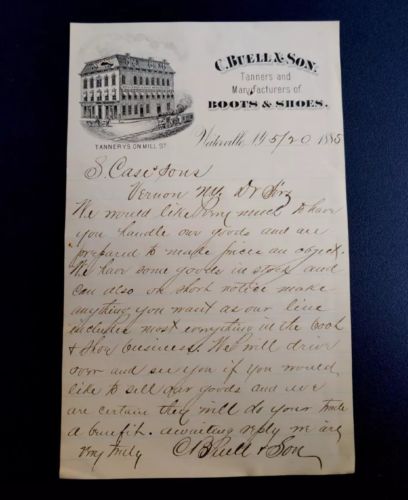 C. BUELL & SON.
Tanners and
Manufacturers of
BOOTS & SHOES.
TANNERYS ON MILL ST.
Waterville, N.Y. 5/20 1885
S. Case & Sons
Vernon N.Y. Dr Sirs
We would like very much to have
you handle our goods and are
prepared to make prices an object.
We have some goods in stock and
can also on short notice make
anything you want as our line
includes most everything in the Boot
& Shoe business. We will drive
over and see you if you would
like to sell our goods and we
are certain they will do your trade
a benefit. awaiting reply we are
very truly C Buell & Son